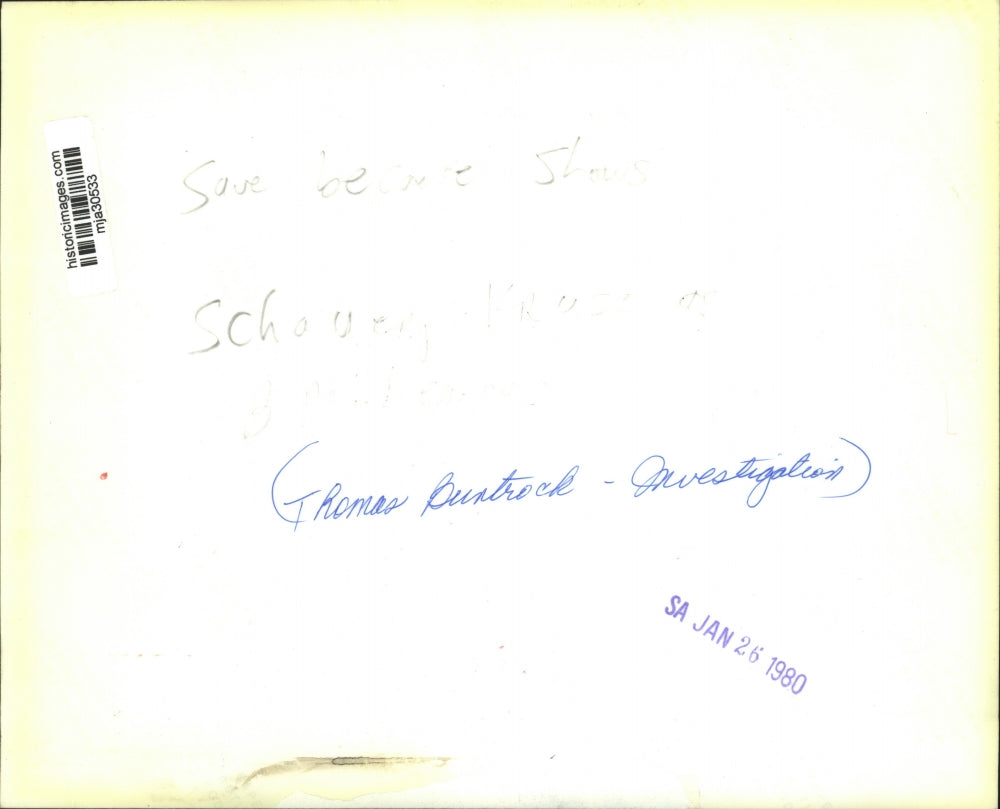 historicimages.com
mja30533
Save because Shows
Schauer
(Thomas Buntrock - Investigation)
SA JAN 26 1980